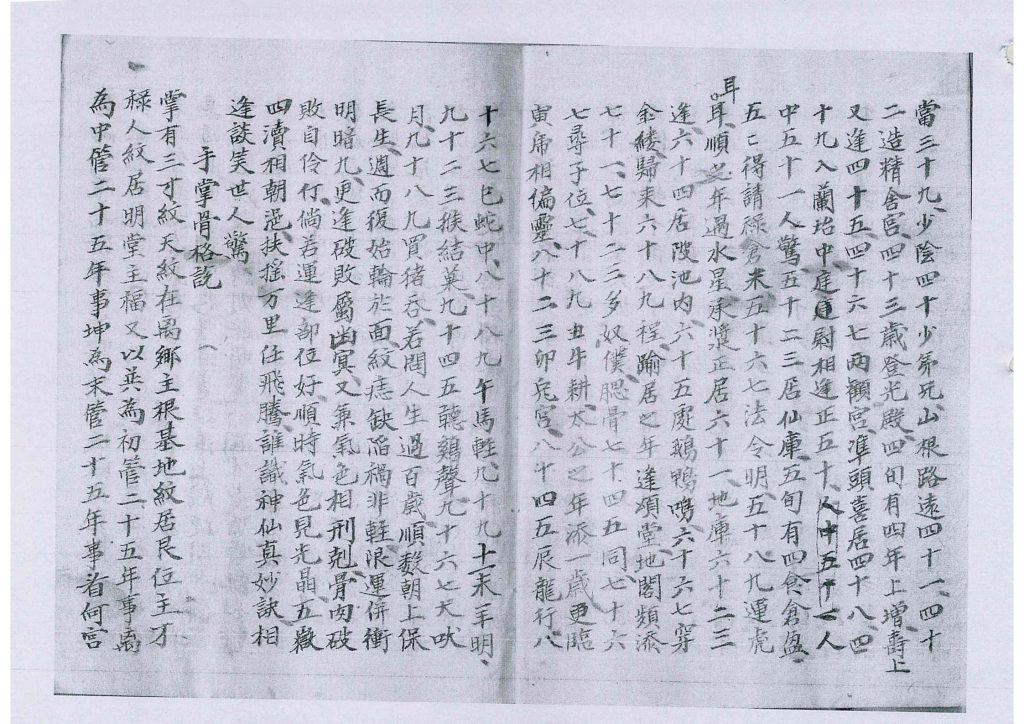 當三十九、少陰四十少弟兄、山根路遠四十一、四十
二造精舍宮四十三歲登光殿、四旬有四年上增、壽上
又逢四十五、四十六七兩顴宮、準頭喜居四十八、四
十九入蘭台中、庭尉相逢正五十、人中五十一人
中五十一人驚、五十二三居仙庫、五旬有四食倉盈、
五五得請祿倉米、五十六七法令明、五十八九運虎
耳、耳順之年過水星、承漿正居六十一、地庫六十二三
逢、六十四居陂池內、六十五處鵝鴨鳴、六十六七穿
金縷、歸來六十八九程、踰居之年逢頌堂、地閣頻添
七十一、七十二三多奴僕、腮骨七十四五同、七十六
七尋子位、七十八九丑牛耕、太公之年添一歲、更臨
寅虎相偏靈、八十二三卯兔宮、八十四五辰龍行、八
十六七巳蛇中、八十八九午馬輕、九十九十一未羊明、
九十二三猴結菓、九十四五聽鷄聲、九十六七犬吠
月、九十八九買猪吞、若問人生過百歲、順數朝上保
長生、週而復始輪於面、紋痣缺陷禍非輕、限運併衝
明暗九、更逢破敗屬幽冥、又兼氣色相刑剋、骨肉破
敗自伶仃、倘若運逢部位好、順時氣色見光晶、五嶽
四瀆相朝挹、扶搖万里任飛騰、誰識神仙真妙訣、相
逢談笑世人驚、
手掌骨格説
掌有三才紋天紋在离鄉主根基地紋居艮位主才
祿人紋居明堂主福又以巽為初管二十五年事离
為中管二十五年事坤為末管二十五年事看何宮